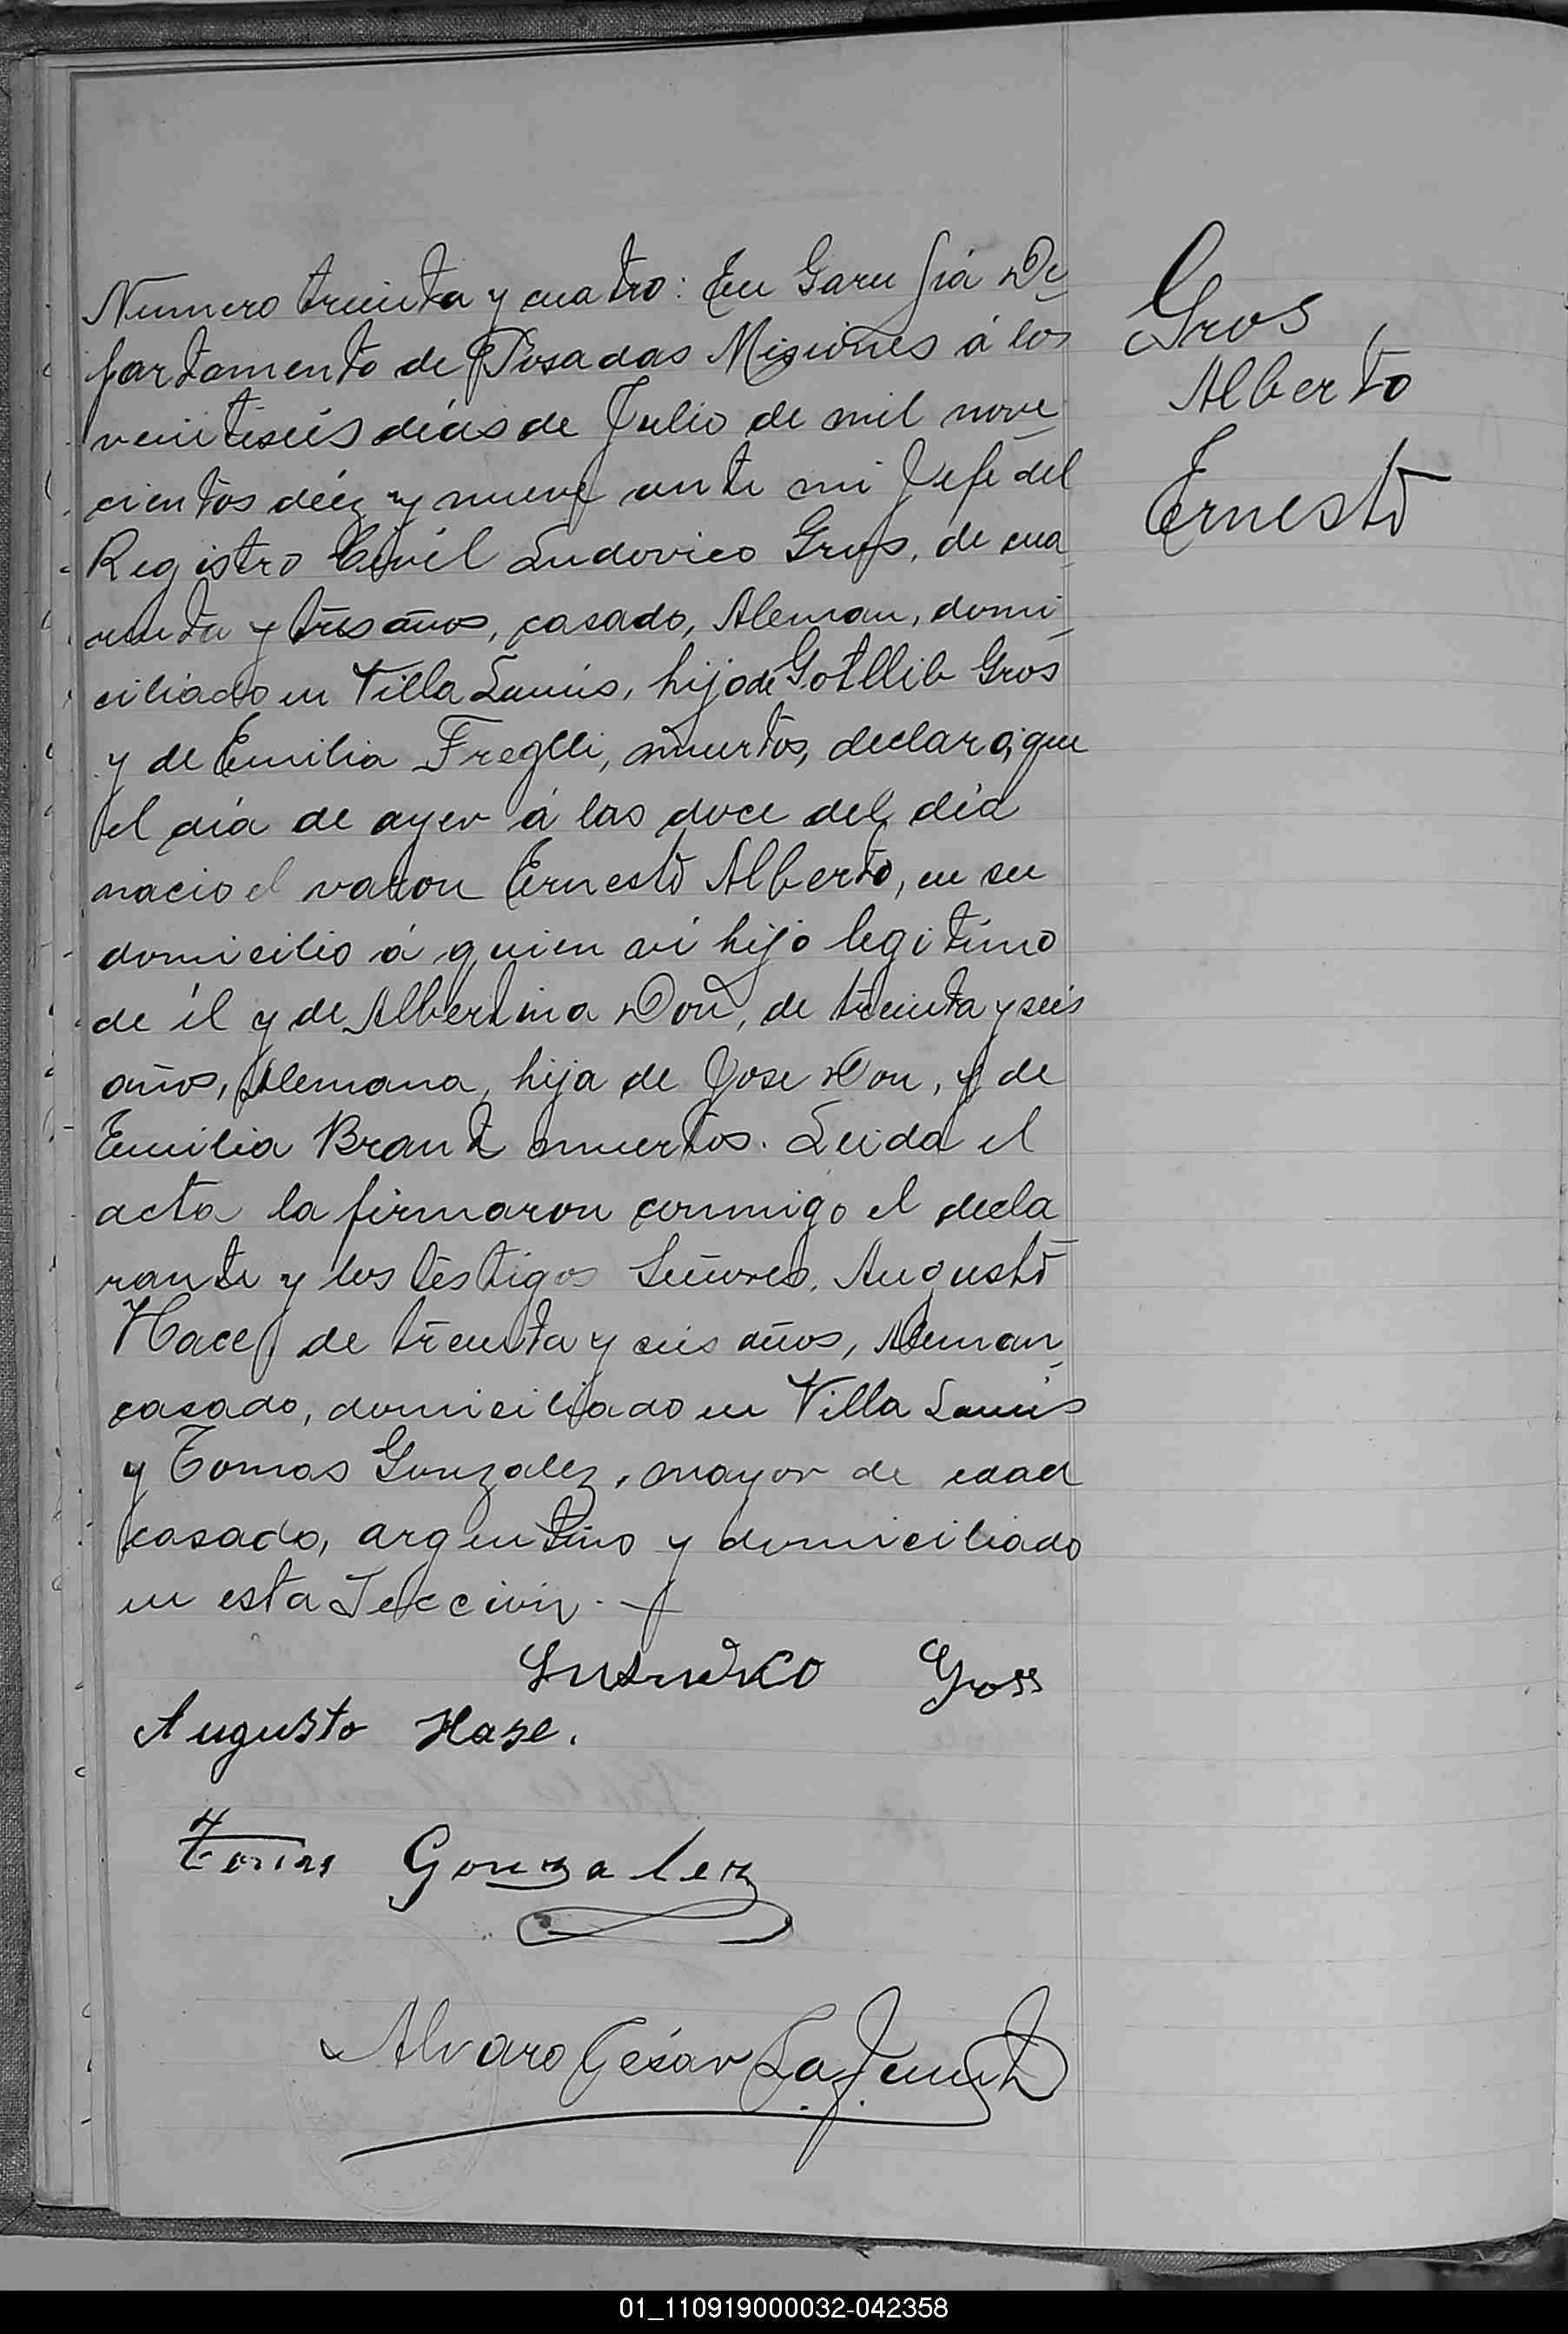 Numero treinta y cuatro: En Garu pá De
partamento de Posadas Misiones á los
veintiseis días de Julio de mil nove
cientos diez y nueve ante mi Jefe del
Registro Civil Ludovico Gros, de cua
renta y tres años, casado, Aleman, domi
ciliado en Villa Lanús, hijo de Gotllib Gros
y de Emilia Freglli, muertos, declaró, que
el día de ayer á las doce del día
nacio el varon Ernesto Alberto, en su
domicilio á quien vi hijo legitimo
de él y de Albertina Don, de treinta y seis
años, Alemana, hija de Jose Don, y de
Emilia Brant muertos. Leida el
acta la firmaron conmigo el decla
rante y los testigos Señores. Augusto
Hace, de treinta y seis años, Aleman
casado, domiciliado en Villa Lanús
y Tomas Gonzalez, mayor de edad
casado, argentino y domiciliado
en esta Sección.
Gros,
Alberto
Ernesto
Ludwico Gross
Augusto Hase.
Tomas Gonzalez
Alvaro César
01_110919000032-042358